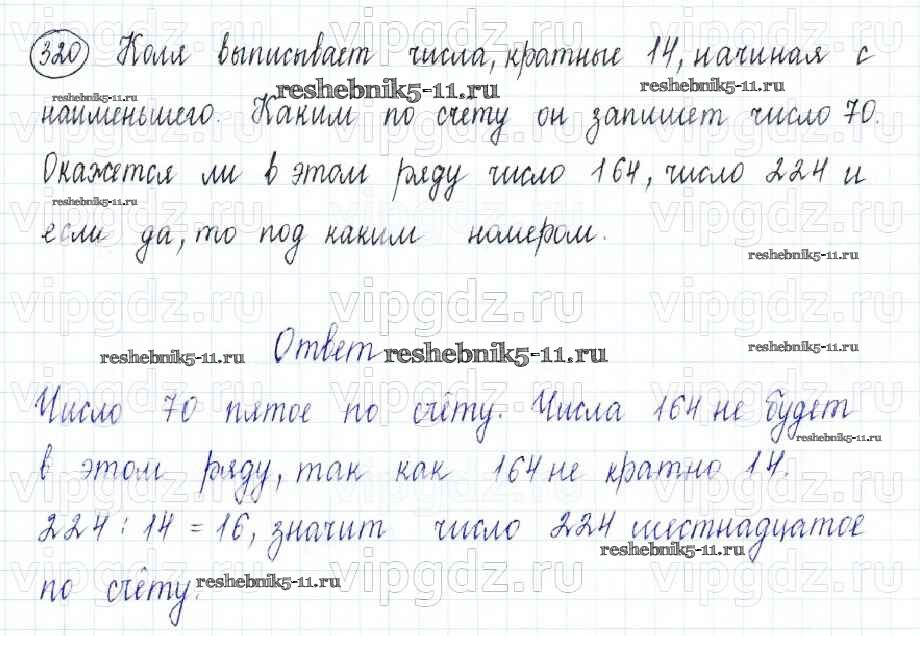 320 Коля выписывает числа, кратные 14, начиная с
reshebnik5-11.ru
reshebnik5-11.ru
наименьшего. Каким по счёту он запишет число 70.
Окажется ли в этом ряду число 164, число 224 и
reshebnik5-11.ru
если да, то под каким номером.
reshebnik5-11.ru
vipgdz.ru
Ответ
reshebnik5-11.ru
reshebnik5-11.ru
reshebnik5-11.ru
Число 70 пятое по счёту. Числа 164 не будет
reshebnik5-11.ru
в этом ряду, так как 164 не кратно 14.
224 : 14 = 16, значит число 224 шестнадцатое
reshebnik5-11.ru
по счёту.
reshebnik5-11.ru